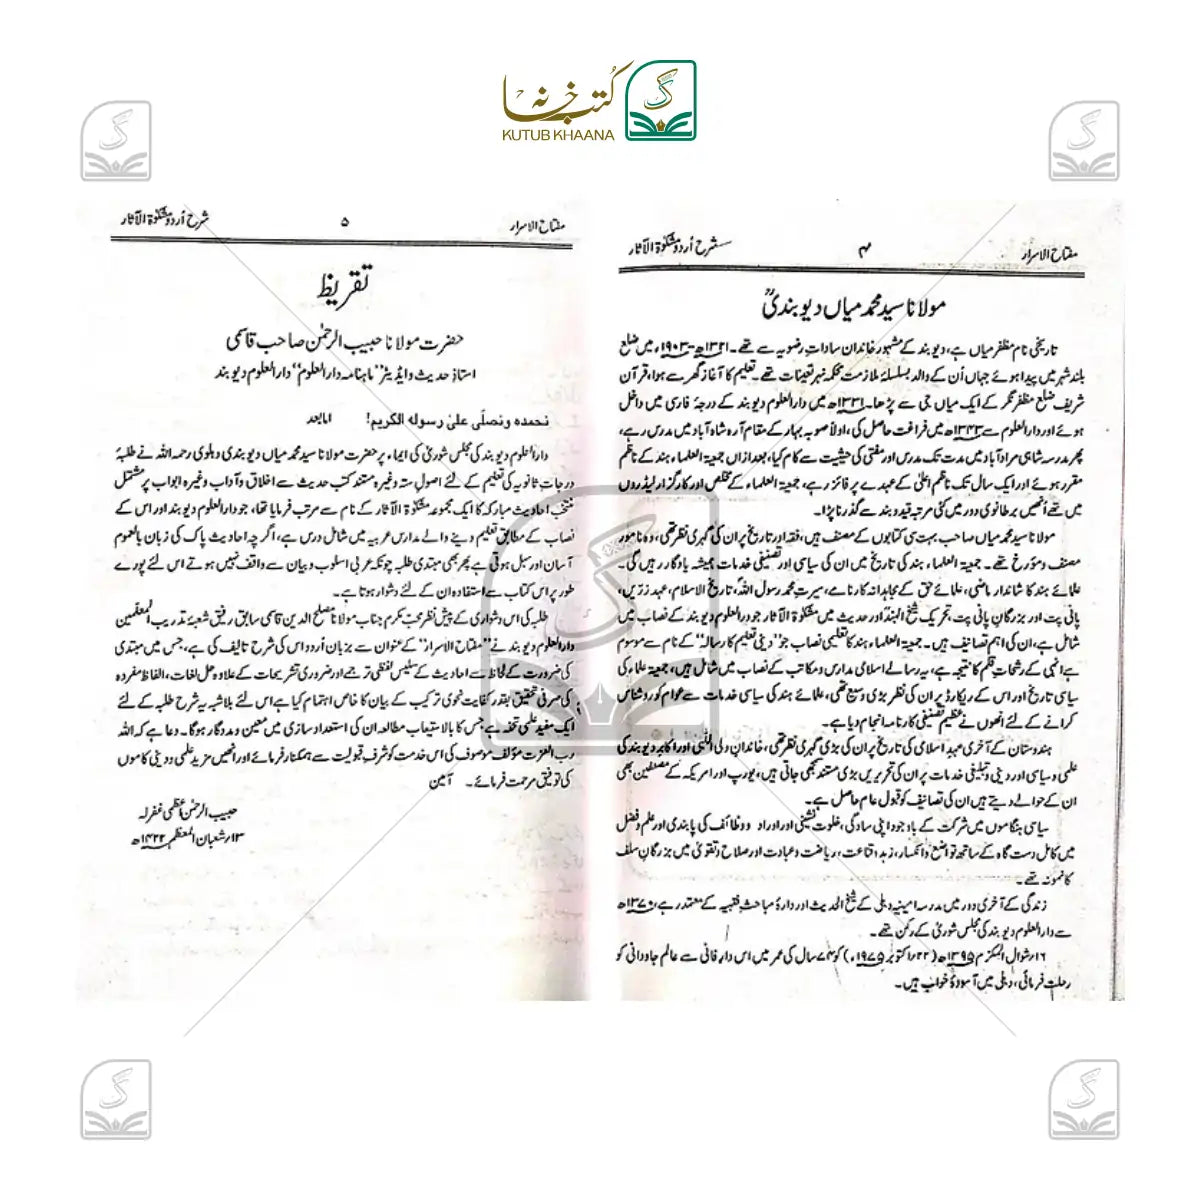 کتب خانہ
KUTUB KHAANA
مفتاح الاسرار ۴ شرح اُردو مشکوٰۃ الآثار
مولانا سید محمد میاں دیوبندیؒ
تاریخی نام مظفر میاں ہے، دیوبند کے مشہور خاندان ساداتِ رضویہ سے تھے۔ ۱۳۲۱ھ-۱۹۰۳ء میں ضلع
بلند شہر میں پیدا ہوئے جہاں اُن کے والد بسلسلۂ ملازمت محکمہ نہر تعینات تھے۔ تعلیم کا آغاز گھر سے ہوا، قرآن
شریف ضلع مظفر نگر کے ایک میاں جی سے پڑھا۔ ۱۳۳۱ھ میں دارالعلوم دیوبند کے درجۂ فارسی میں داخل
ہوئے اور دارالعلوم سے ۱۳۴۳ھ میں فراغت حاصل کی، اولاً صوبہ بہار کے مقام آرہ شاہ آباد میں مدرس رہے،
پھر مدرسہ شاہی مرادآباد میں مدت تک مدرس اور مفتی کی حیثیت سے کام کیا، بعد ازاں جمعیۃ العلماء ہند کے ناظم
مقرر ہوئے اور ایک سال تک ناظم اعلیٰ کے عہدے پر فائز رہے، جمعیۃ العلماء کے مخلص اور کارگزار لیڈروں
میں تھے اُنھیں برطانوی دور میں کئی مرتبہ قید و بند سے گذرنا پڑا۔
مولانا سید محمد میاں صاحب بہت سی کتابوں کے مصنف ہیں، فقہ اور تاریخ پر ان کی گہری نظر تھی، وہ نامور
مصنف و مؤرخ تھے۔ جمعیۃ العلماء ہند کی تاریخ میں ان کی سیاسی اور تصنیفی خدمات ہمیشہ یادگار رہیں گی۔
علمائے ہند کا شاندار ماضی، علمائے حق کے مجاہدانہ کارنامے، سیرتِ محمد رسول اللہ، تاریخ الاسلام، عہد زریں،
پانی پت اور بزرگانِ پانی پت، تحریک شیخ الہند اور حدیث میں مشکوٰۃ الآثار جو دارالعلوم دیوبند کے نصاب میں
شامل ہے، ان کی اہم تصانیف ہیں۔ جمعیۃ العلماء ہند کا تعلیمی نصاب جو ”دینی تعلیم کا رسالہ“ کے نام سے موسوم
ہے انہی کے رشحاتِ قلم کا نتیجہ ہے، یہ رسالے اسلامی مدارس و مکاتب کے نصاب میں شامل ہیں، جمعیۃ علماء کی
سیاسی تاریخ اور اس کے ریکارڈ پر ان کی نظر بڑی وسیع تھی، علمائے ہند کی سیاسی خدمات سے عوام کو روشناس
کرانے کے لئے انھوں نے عظیم تصنیفی کارنامہ انجام دیا ہے۔
ہندوستان کے آخری عہدِ اسلامی کی تاریخ پر ان کی بڑی گہری نظر تھی، خاندانِ ولی اللّٰہی اور اکابر دیوبند کی
علمی و سیاسی اور دینی و تبلیغی خدمات پر ان کی تحریریں بڑی مستند سمجھی جاتی ہیں، یورپ اور امریکہ کے مصنفین بھی
ان کے حوالے دیتے ہیں ان کی تصانیف کو قبول عام حاصل ہے۔
سیاسی ہنگاموں میں شرکت کے باوجود اپنی سادگی، خلوت نشینی اور اوراد و وظائف کی پابندی اور علم و فضل
میں کامل دست گاہ کے ساتھ تواضع و انکسار، زہد و قناعت، ریاضت و عبادت اور صلاح و تقویٰ میں بزرگانِ سلف
کا نمونہ تھے۔
زندگی کے آخری دور میں مدرسہ امینیہ دہلی کے شیخ الحدیث اور ادارۂ مباحثِ فقہیہ کے معتمد رہے، ۱۳۷۰ھ
سے دارالعلوم دیوبند کی مجلس شوریٰ کے رکن تھے۔
۱۶؍ شوال المکرم ۱۳۹۵ھ (۲۲؍ اکتوبر ۱۹۷۵ء) کو ۷۴ سال کی عمر میں اس دارِ فانی سے عالم جاودانی کو
رحلت فرمائی، دہلی میں آسودۂ خواب ہیں۔
مفتاح الاسرار ۵ شرح اُردو مشکوٰۃ الآثار
تقریظ
حضرت مولانا حبیب الرحمٰن صاحب قاسمی
استاذ حدیث و ایڈیٹر ”ماہنامہ دارالعلوم“ دارالعلوم دیوبند
نحمدہ ونصلی علیٰ رسولہ الکریم! امابعد
دارالعلوم دیوبند کی مجلس شوریٰ کی ایماء پر حضرت مولانا سید محمد میاں دیوبندی دہلوی رحمہ اللہ نے طلبۂ
درجاتِ ثانویہ کی تعلیم کے لئے اصولِ ستہ وغیرہ مستند کتب حدیث سے اخلاق و آداب وغیرہ ابواب پر مشتمل
منتخب احادیث مبارکہ کا ایک مجموعہ مشکوٰۃ الآثار کے نام سے مرتب فرمایا تھا، جو دارالعلوم دیوبند اور اس کے
نصاب کے مطابق تعلیم دینے والے مدارس عربیہ میں شامل درس ہے، اگرچہ احادیث پاک کی زبان بالعموم
آسان اور سہل ہوتی ہے پھر بھی مبتدی طلبہ چونکہ عربی اسلوب و بیان سے واقف نہیں ہوتے اس لئے پورے
طور پر اس کتاب سے استفادہ ان کے لئے دشوار ہوتا ہے۔
طلبہ کی اس دشواری کے پیش نظر محبّ مکرم جناب مولانا مصلح الدین قاسمی سابق رفیق شعبۂ تدریب المعلمین
دارالعلوم دیوبند نے ”مفتاح الاسرار“ کے عنوان سے بزبان اُردو اس کی شرح تالیف کی ہے، جس میں مبتدی
کی ضرورت کے لحاظ سے احادیث کے سلیس لفظی ترجمے اور ضروری تشریحات کے علاوہ حل لغات، الفاظ مفردہ
کی صرفی تحقیق بقدر کفایت نحوی ترکیب کے بیان کا خاص اہتمام کیا ہے اس لئے بلاشبہ یہ شرح طلبہ کے لئے
ایک مفید علمی تحفہ ہے جس کا بالاستیعاب مطالعہ ان کی استعداد سازی میں معین و مددگار ہوگا۔ دعا ہے کہ اللہ
رب العزت مؤلف موصوف کی اس خدمت کو شرف قبولیت سے ہمکنار فرمائے اور انھیں مزید علمی و دینی کاموں
کی توفیق مرحمت فرمائے۔ آمین
حبیب الرحمٰن اعظمی غفرلہ
۱۳؍ شعبان المعظم ۱۴۲۲ھ